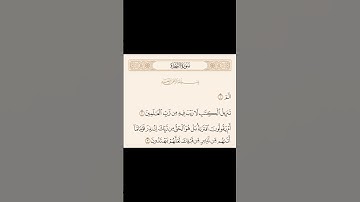 سُورَةُ السَّجْدَةِ
بِسْمِ ٱللَّهِ ٱلرَّحْمَٰنِ ٱلرَّحِيمِ
الٓمٓ ١
تَنزِيلُ ٱلْكِتَٰبِ لَا رَيْبَ فِيهِ مِن رَّبِّ ٱلْعَٰلَمِينَ ٢
أَمْ يَقُولُونَ ٱفْتَرَىٰهُ بَلْ هُوَ ٱلْحَقُّ مِن رَّبِّكَ لِتُنذِرَ قَوْمًا مَّآ
أَتَىٰهُم مِّن نَّذِيرٍ مِّن قَبْلِكَ لَعَلَّهُمْ يَهْتَدُونَ ٣